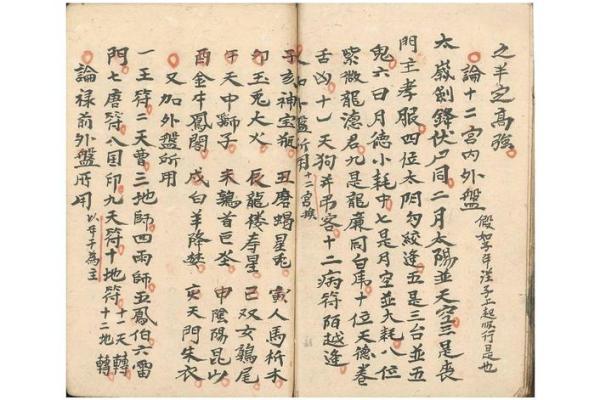 之半之高強
論十二宮內外盤 假如子年從子上起順行是也
太歲劍鋒伏尸同二月太陽並天空三是喪
門主孝服四位太阴勾絞逢五是三台並五
鬼六曰月德小耗中七是月空並大耗八位
紫微龍德名九是龍廉同白虎十位天德卷
舌凶十一天狗并弔客十二病符陌越逢
又加外盤所用 十二宮挨
子亥神宝瓶 丑磨蝎星兎 寅人馬析木
卯玉兎大火 辰龍楼寿星 巳双女鶉尾
午天中獅子 未鶉首巨蟹 申陰陽昆山
酉金牛鳳閣 戌白羊降婁 亥天門朱衣
又加外盤所用
一王符二天曹三地師四雨師五鳳伯六雷
門七唐符八国印九天符十地符十一天轉十二地轉
論禄前外盤所用 以年干為主